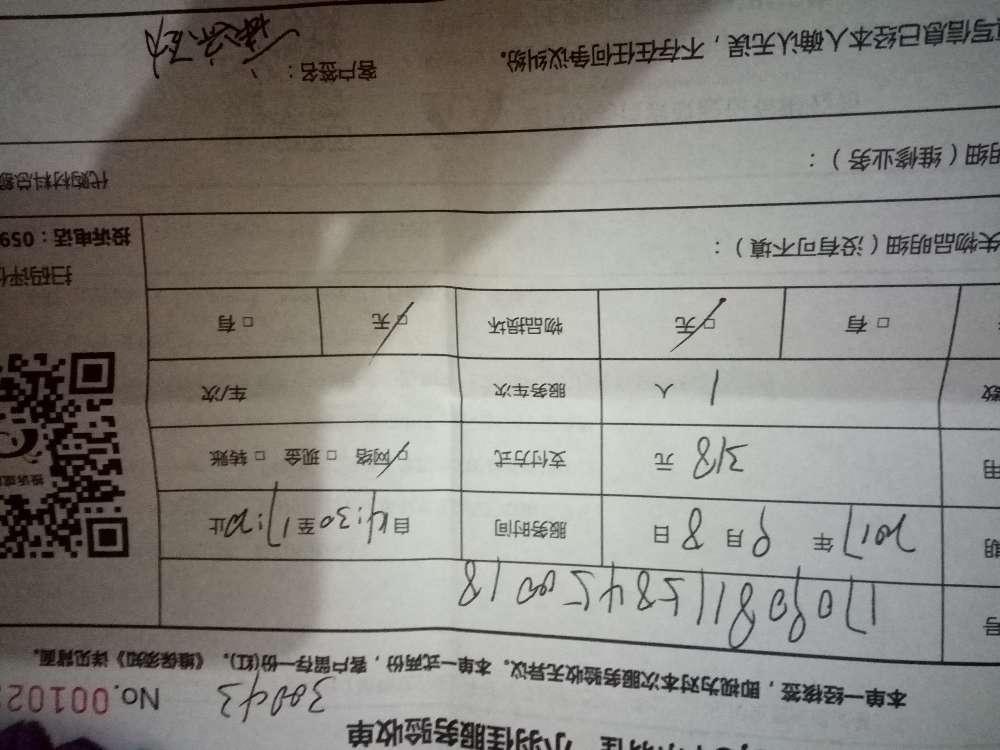 小羽佳服务验收单
30043 No. 00102
本单一经核签，即视为对本次服务验收无异议。本单一式两份，客户留存一份(红)。《维保须知》详见背面。
号 17090811584500018
期 2017 年 9 月 8 日 服务时间 自14:30至17:30止
用 318 元 支付方式 □网络 □现金 □转账
数 1 人 服务车次 车/次
□有 □无 物品损坏 □无 □有
失物品明细（没有可不填）：
扫码评价
投诉电话：059
明细（维修业务）：
代购材料总额
写信息已经本人确认无误，不存在任何争议纠纷。 客户签名：